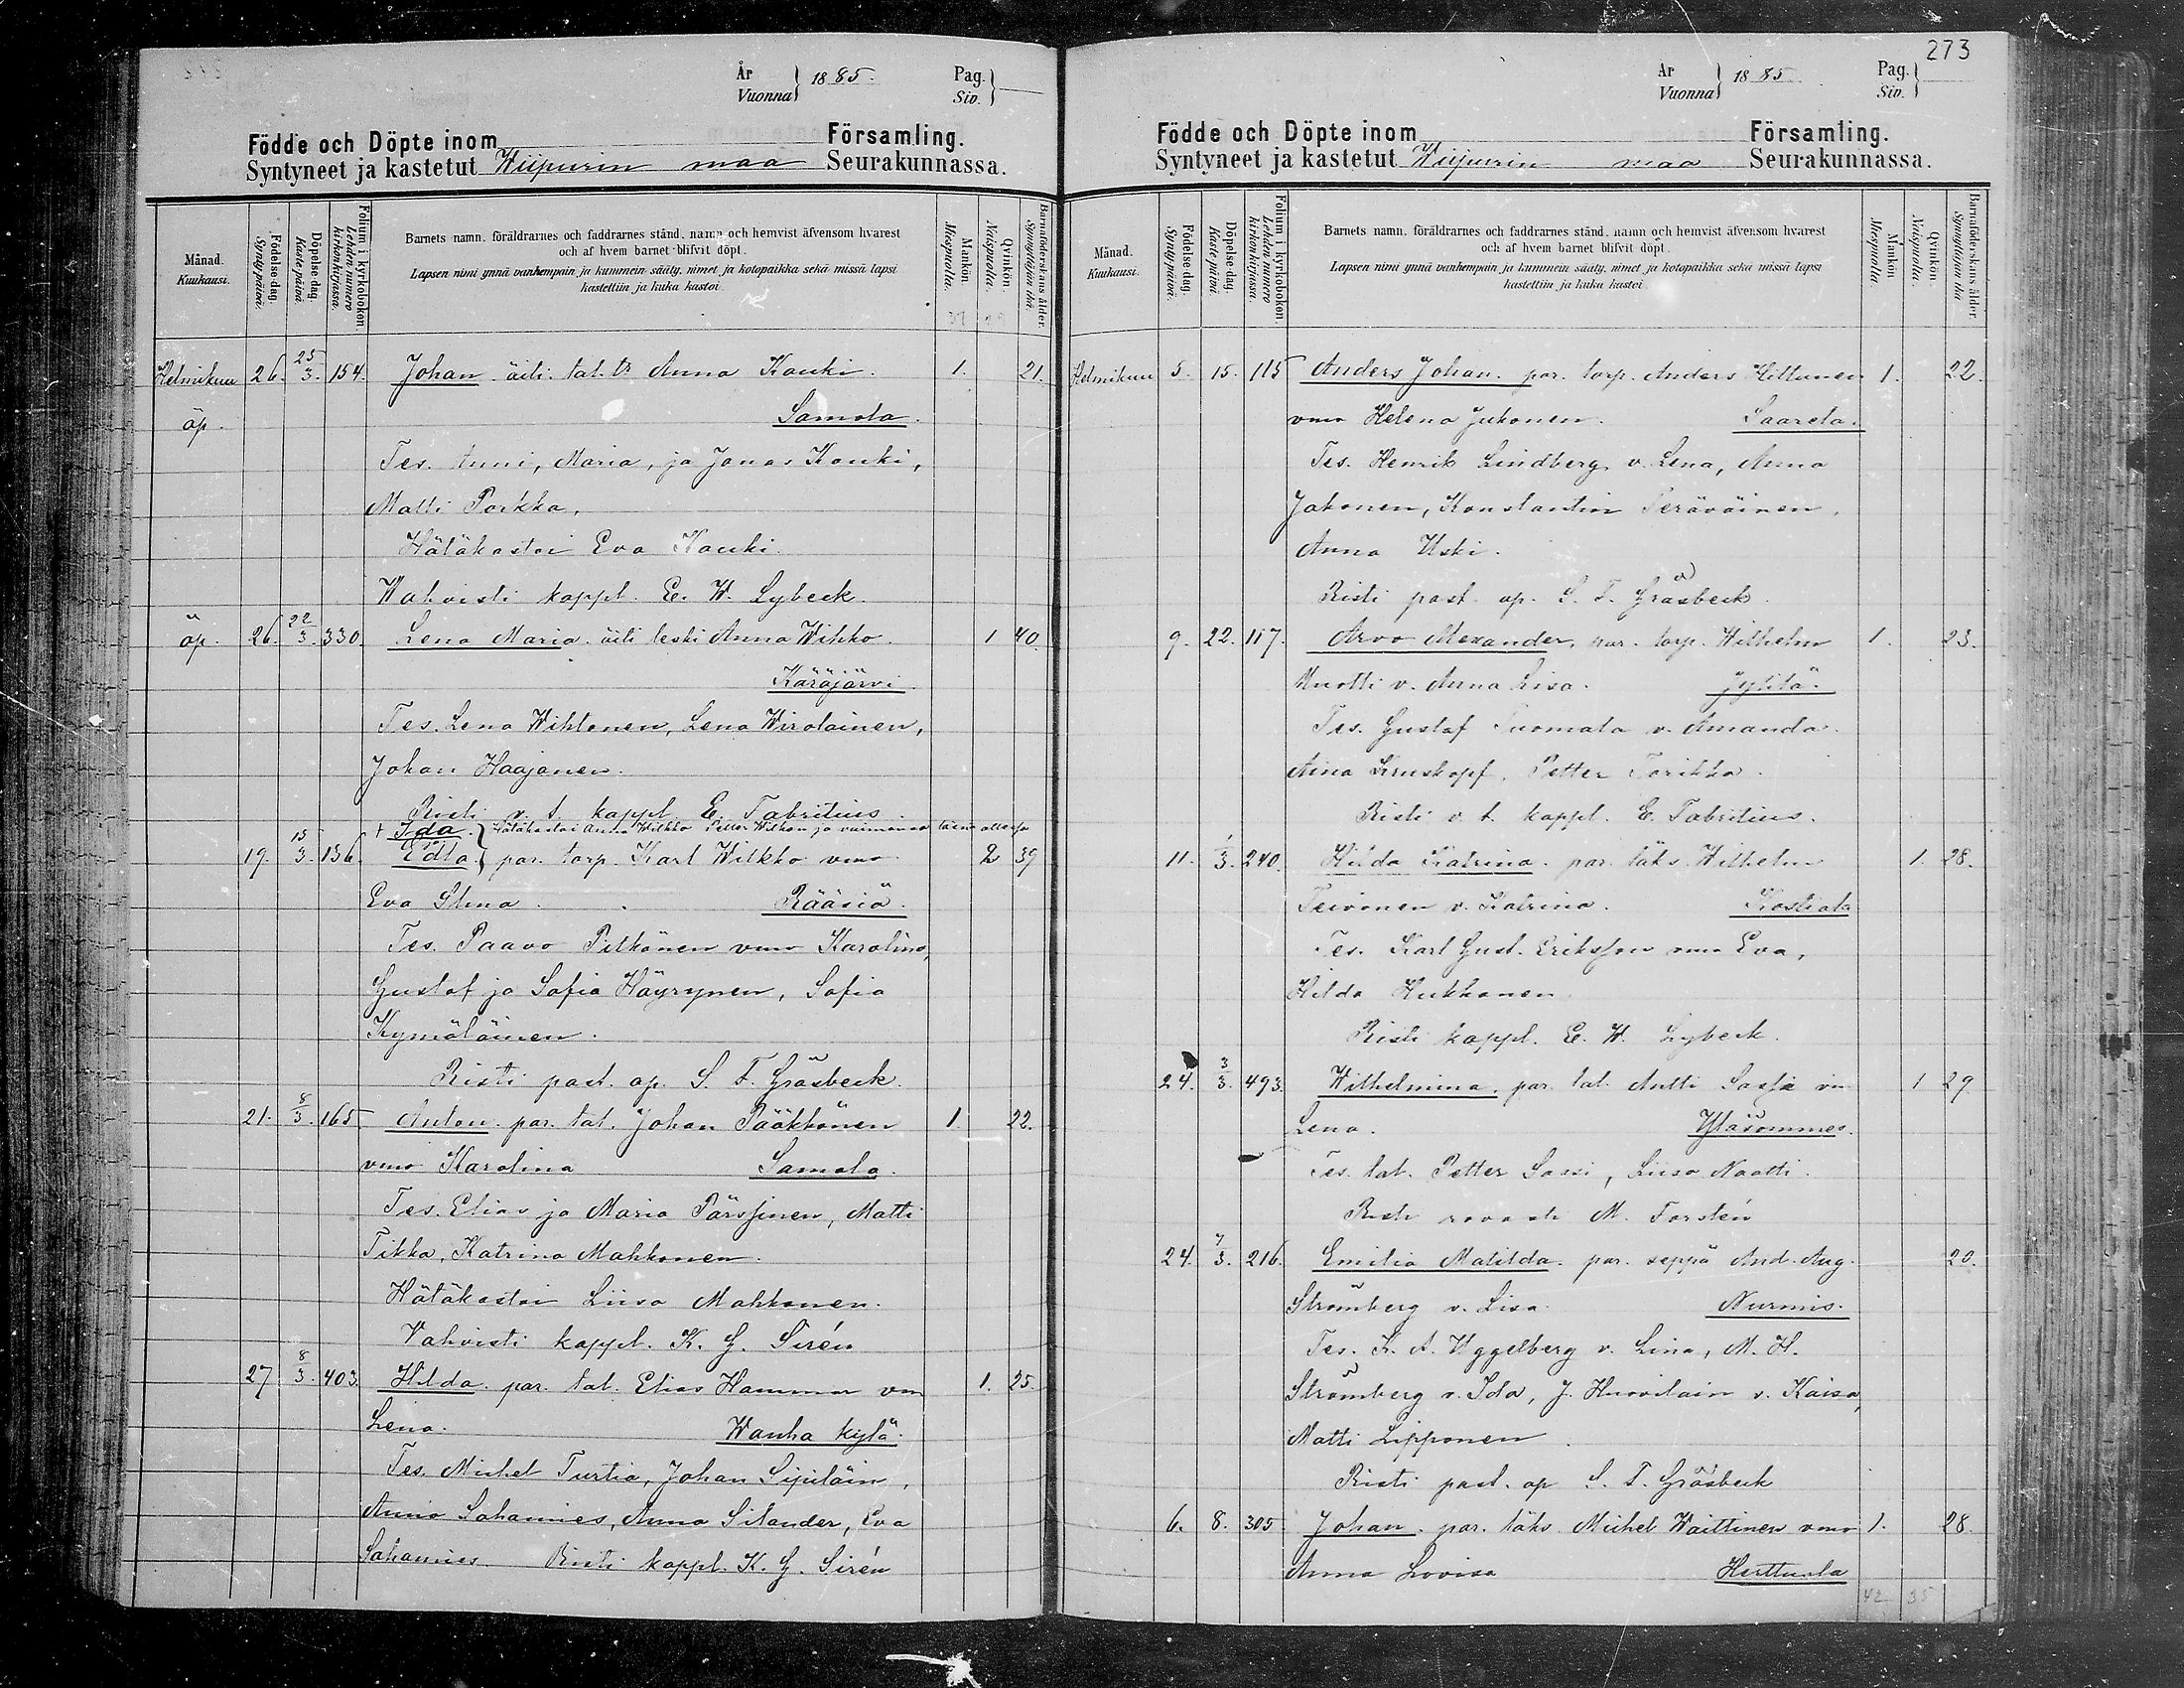 År
Vuonna } 1885.
Pag.
Siv. }
Födde och Döpte inom Församling.
Syntyneet ja kastetut Wiipurin maa Seurakunnassa.
Månad.
Kuukausi.
Födelse-dag.
Synty-päivä.
Döpelse-dag.
Kaste-päivä.
Folium i kyrkoboken
Lehden numero kirkonkirjassa.
Barnets namn, föräldrarnes och faddrarnes stånd, namn och hemvist äfvensom hvarest
och af hvem barnet blifvit döpt.
Lapsen nimi ynnä vanhempain ja kummein sääty, nimet ja kotopaikka sekä missä lapsi
kastettiin ja kuka kastoi
Mankön.
Miespuolia.
Qvinkön.
Naispuolia.
Barnaföderskans ålder.
Synnyttäjän ikä.
Helmikuu 26. 25/3. 154. Johan. äiti tal. tr Anna Kauki. 1. 21.
äp. Samola.
Tes. Anni, Maria, ja Jonas Kauki,
Matti Porkka,
Hätäkastoi Eva Kauki.
Wahvisti kappl. E. W. Lybeck.
äp. 26. 22/3. 330. Lena Maria. äiti leski Anna Wihko. 1 40.
Käräjärvi.
Tes. Lena Wihtonen, Lena Wirolainen,
Johan Haajanen.
Risti v. t. kappl. E. Fabritius.
+ Ida. } Hätäkastoi Anna Wilkko Petter Wilkon ja vaimonsa läsnä ollessa
19. 15/3. 136. Edla. } par. torp. Karl Wilkko vmo 2 39
Eva Stina. Rääsiä.
Tes. Paavo Pitkänen vmo Karolina,
Gustaf ja Sofia Häyrynen, Sofia
Kymäläinen.
Risti past. ap. S. F. Gräsbeck.
21. 8/3. 165 Anton. par. tal. Johan Pääkkönen 1. 22.
vmo Karolina Samola.
Tes. Elias ja Maria Pärssinen, Matti
Tikka, Katrina Mahkonen.
Hätäkastoi Liisa Mahkonen.
Vahvisti kappl. K. G. Sirén
27 8/3. 403. Hilda. par. tal. Elias Hammar vm 1. 25.
Lena. Wanha kylä.
Tes. Michel Turtia, Johan Sipiläin,
Anna Sahamies, Anna Silander, Eva
Sahamies Risti kappl. K. G. Sirén
273
År
Vuonna } 1885.
Pag.
Siv. }
Födde och Döpte inom Församling.
Syntyneet ja kastetut Wiipurin maa Seurakunnassa.
Månad.
Kuukausi.
Födelse-dag.
Synty-päivä.
Döpelse-dag.
Kaste-päivä.
Folium i kyrkoboken.
Lehden numero kirkonkirjassa.
Barnets namn, föräldrarnes och faddrarnes stånd, namn och hemvist äfvensom hvarest
och af hvem barnet blifvit döpt.
Lapsen nimi ynnä vanhempain ja kummein sääty, nimet ja kotopaikka sekä missä lapsi
kastettiin ja kuka kastoi
Mankön.
Miespuolia.
Qvinkön.
Naispuolia.
Barnaföderskans ålder.
Synnyttäjän ikä
Helmikuu 5. 15. 115 Anders Johan. par. torp. Anders Hittunen 1. 22.
vmo Helena Jukonen. Saarela.
Tes. Henrik Lindberg v. Lena, Anna
Jakonen, Konstantin Teräväinen,
Anna Uski.
Risti past. ap. S. F. Gräsbeck.
9. 22. 117. Arvo Alexander, par. torp. Wilhelm 1. 23.
Muotti v. Anna Lisa. Jytilä.
Tes. Gustaf Tuomala v. Amanda.
Aina Kruskopf, Petter Torikka.
Risti v. t. kappl. E. Fabritius.
11. 1/3. 240. Hilda Katrina. par. läks. Wilhelm 1. 28.
Teivonen v. Katrina. Kostiala
Tes. Karl Gust. Eriksson vmo Eva,
Hilda Hukkanen.
Risti kappl. E. W. Lybeck.
24. 3/3. 493. Wilhelmina. par. tal. Antti Sassi vm 1 29.
Lena. Yläsommee.
Tes. tal. Petter Sassi, Liisa Naatti.
Risti rovasti M. Forstén
24. 7/3. 216. Emilia Matilda. par. seppä And. Aug. 20.
Strömberg v. Lisa. Nurmis.
Tes. K. A. Uggelberg v. Lina, M. H.
Strömberg v. Ida, J. Huovilain v. Kaisa,
Matti Lipponen.
Risti past. ap S. F. Gräsbeck
6. 8. 305 Johan. par. läks Michel Waittinen vmo 1. 28.
Anna Lovisa Herttuala
42 35